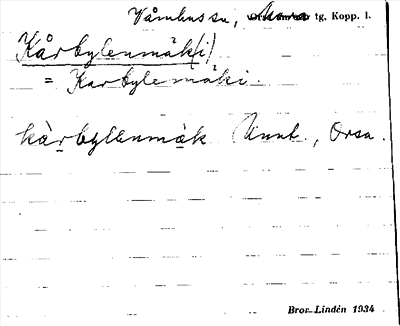 Våmhus sn, Mora tg. Kopp. l.
Kårbylenmäk(i)
= Karbylemäki.
kàrbyllenmäk Uunt., Orsa.
Bror Lindén 1934